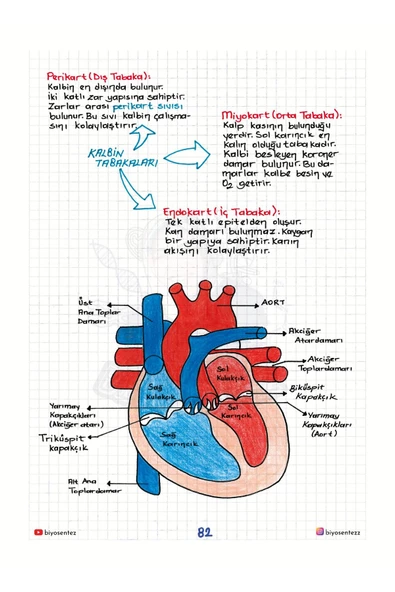 Perikart (Dış Tabaka):
Kalbin en dışında bulunur.
İki katlı zar yapısına sahiptir.
Zarlar arası perikart sıvısı
bulunur. Bu sıvı kalbin çalışma-
sını kolaylaştırır.
Miyokart (Orta Tabaka):
Kalp kasının bulunduğu
yerdir. Sol karıncık en
kalın olduğu tabakadır.
Kalbi besleyen koroner
damar bulunur. Bu da-
marlar kalbe besin ve
O2 getirir.
KALBİN
TABAKALARI
Endokart (İç Tabaka):
Tek katlı epitelden oluşur.
Kan damarı bulunmaz. Kaygan
bir yapıya sahiptir. Kanın
akışını kolaylaştırır.
Üst
Ana Toplar
Damarı
AORT
Akciğer
Atardamarı
Akciğer
Toplardamarı
Biküspit
Kapakçık
Yarımay
Kapakçıkları
(Aort)
Sağ
Kulakçık
Sol
Kulakçık
Sol
Karıncık
Sağ
Karıncık
Yarımay
Kapakçıkları
(Akciğer atarı)
Triküspit
kapakçık
Alt Ana
Toplardamar
biyosentez
82
biyosentezz